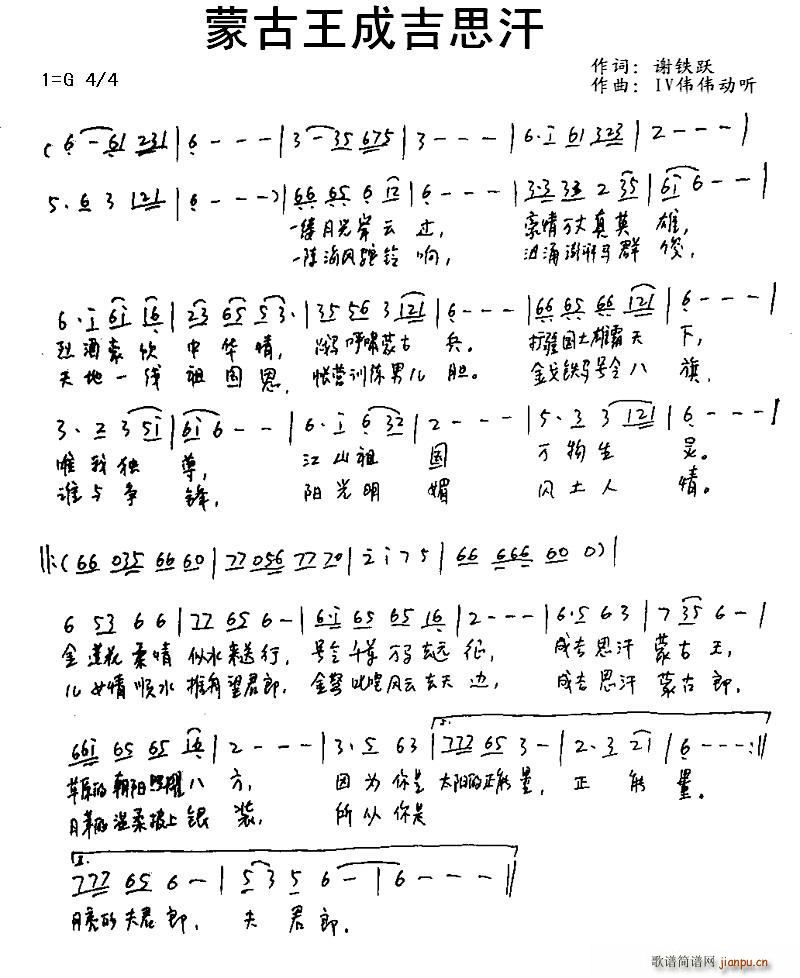 蒙古王成吉思汗
1=G 4/4
作词：谢铁跃
作曲：IV伟伟动听
(6 - 61 231 | 6 - - - | 3 - 35 675 | 3 - - - | 6·i 61 323 | 2 - - - |
5·6 3 121 | 6 - - -) | 66 65 6 12 | 6 - - - | 3·3 33 2 35 | 6i 6 - - |
月光 云过， 豪情万丈真英雄，
一阵海风驼铃响， 汹涌澎湃马群
6·i 6i 16 | 23 65 53· | 35 56 3 121 | 6 - - - | 66 65 66 121 | 6 - - - |
烈酒豪饮中华情， 呼啸蒙古兵。 打疆国土雄霸天下，
天地一线祖国恩， 帐营训练男儿胆。 金戈铁马号令八旗，
3·2 3 5i | 6i 6 - - | 6·i 6 32 | 2 - - - | 5·3 3 121 | 6 - - - |
唯我独尊， 江山祖国 万物生灵。
谁与争锋， 阳光明媚 风土人情。
‖:(66 035 66 60 | 77 056 77 70 | 2 i 7 5 | 66 666 60 0) |
6 53 6 6 | 77 65 6 - | 6·i 65 65 16 | 2 - - - | 6·5 6 3 | 7 35 6 - |
金莲花柔情似水来送行， 号令千 万马去远征， 成吉思汗蒙古王，
儿女情顺水推舟望君郎， 金弩叱咤风云去天边， 成吉思汗蒙古郎，
66i 65 65 16 | 2 - - - | 3·5 63 | 777 65 3 - | 2·3 21 | 6 - - - :‖
草原的朝阳照耀八方， 因为你是太阳的正能量， 正能量。
月 的温柔披上银装， 所以你是
2.
777 65 6 - | 5 3 5 6 - | 6 - - - ‖
月亮的夫君郎， 夫君郎。
歌谱简谱网 jianpu.cn